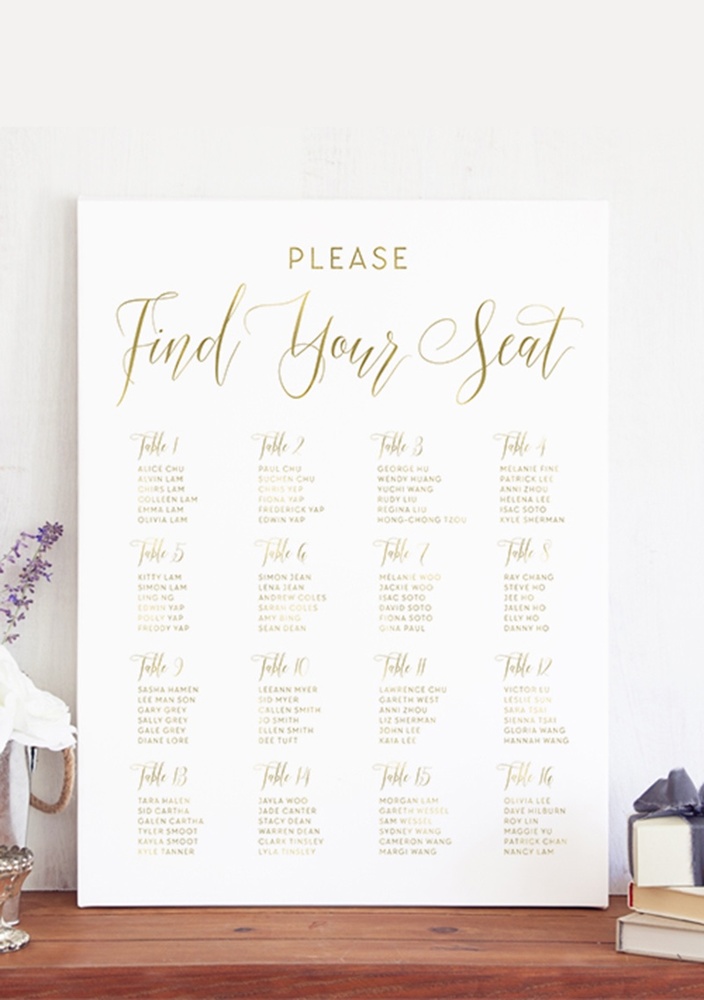 PLEASE
Find Your Seat
Table 1
ALICE CHU
ALVIN LAM
CHIRS LAM
COLLEEN LAM
EMMA LAM
OLIVIA LAM
Table 2
PAUL CHU
SUCHEN CHU
CHRIS YEP
FIONA YAP
FREDERICK YAP
EDWIN YAP
Table 3
GEORGE HU
WENDY HUANG
YUCHI WANG
RUDY LIU
REGINA LIU
HONG-CHONG TZOU
Table 4
MELANIE FINE
PATRICK LEE
ANNI ZHOU
HELENA LEE
ISAC SOTO
KYLE SHERMAN
Table 5
KITTY LAM
SIMON LAM
LING NG
EDWIN YAP
POLLY YAP
FREDDY YAP
Table 6
SIMON JEAN
LENA JEAN
ANDREW COLES
SARAH COLES
AMY BING
SEAN DEAN
Table 7
MELANIE WOO
JACKIE WOO
ISAC SOTO
DAVID SOTO
FIONA SOTO
GINA PAUL
Table 8
RAY CHANG
STEVE HO
JEE HO
JALEN HO
ELLY HO
DANNY HO
Table 9
SASHA HAMEN
LEE MAN SON
GARY GREY
SALLY GREY
GALE GREY
DIANE LORE
Table 10
LEEANN MYER
SID MYER
CALLEN SMITH
JO SMITH
ELLEN SMITH
DEE TUFT
Table 11
LAWRENCE CHU
GARETH WEST
ANNI ZHOU
LIZ SHERMAN
JOHN LEE
KAIA LEE
Table 12
VICTOR LU
LESLIE SUN
SARA TSAI
SIENNA TSAI
GLORIA WANG
HANNAH WANG
Table 13
TARA HALEN
SID CARTHA
GALEN CARTHA
TYLER SMOOT
KAYLA SMOOT
KYLE TANNER
Table 14
JAYLA WOO
JADE CANTER
STACY DEAN
WARREN DEAN
CLARK TINSLEY
LYLA TINSLEY
Table 15
MORGAN LAM
GARETH WESSEL
SAM WESSEL
SYDNEY WANG
CAMERON WANG
MARGI WANG
Table 16
OLIVIA LEE
DAVE HILBURN
ROY LIN
MAGGIE YU
PATRICK CHAN
NANCY LAM